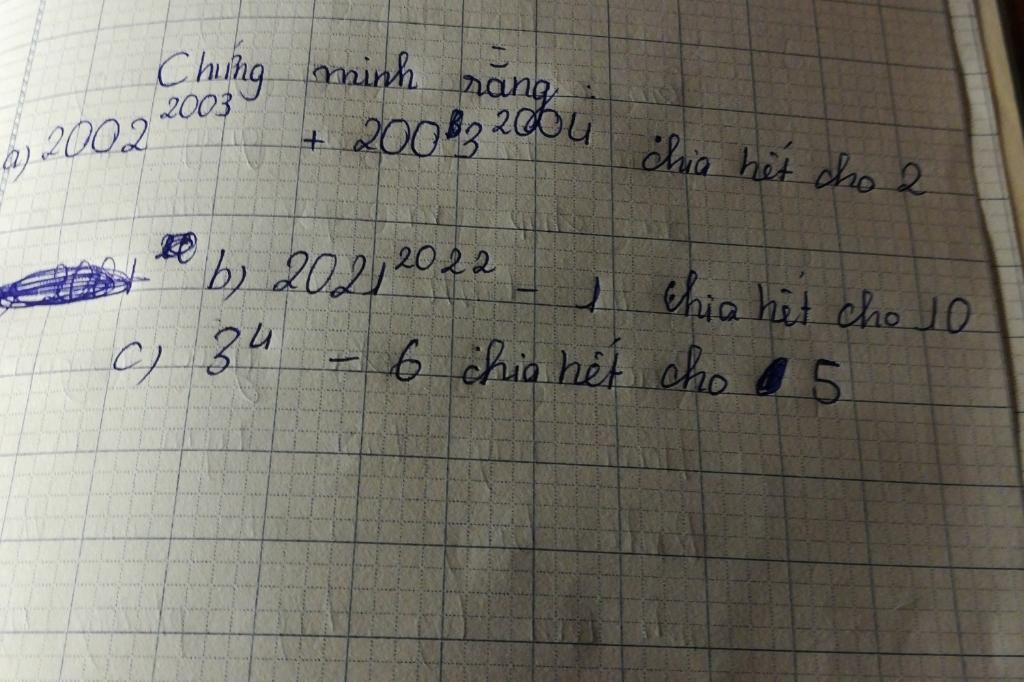 Chứng minh rằng:
a) 2002^2003 + 2003^2004 chia hết cho 2
b) 2021^2022 - 1 chia hết cho 10
c) 3^4 - 6 chia hết cho 5